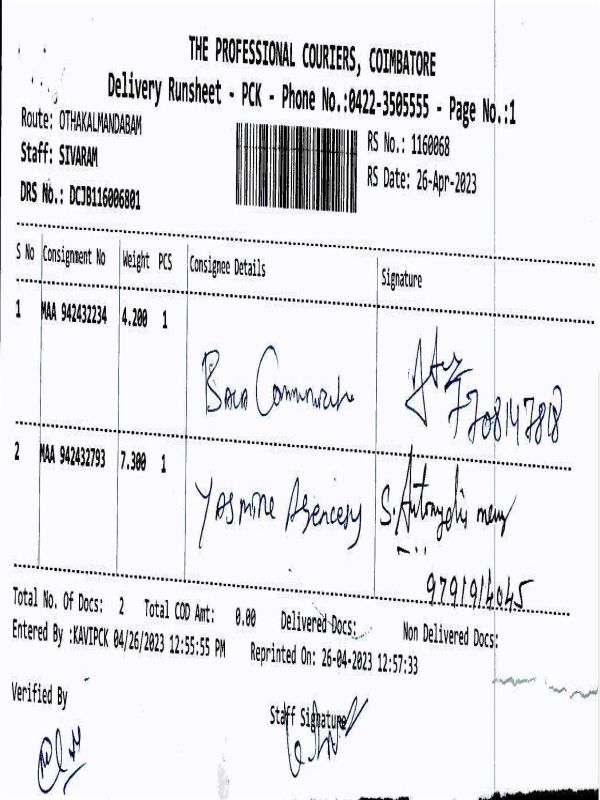 THE PROFESSIONAL COURIERS, COIMBATORE
Delivery Runsheet - PCK - Phone No.:0422-3505555 - Page No.:1
Route: OTHAKALMANDABAM
RS No.: 1160068
Staff: SIVARAM
RS Date: 26-Apr-2023
DRS No.: DCJB116006801
S No Consignment No Weight PCS Consignee Details Signature
1 MAA 942432234 4.200 1
7708147818
2 MAA 942432793 7.300 1
Yasmine S.
9791914045
Total No. Of Docs: 2 Total COD Amt: 0.00 Delivered Docs: Non Delivered Docs:
Entered By :KAVIPCK 04/26/2023 12:55:55 PM Reprinted On: 26-04-2023 12:57:33
Verified By
Staff Signature